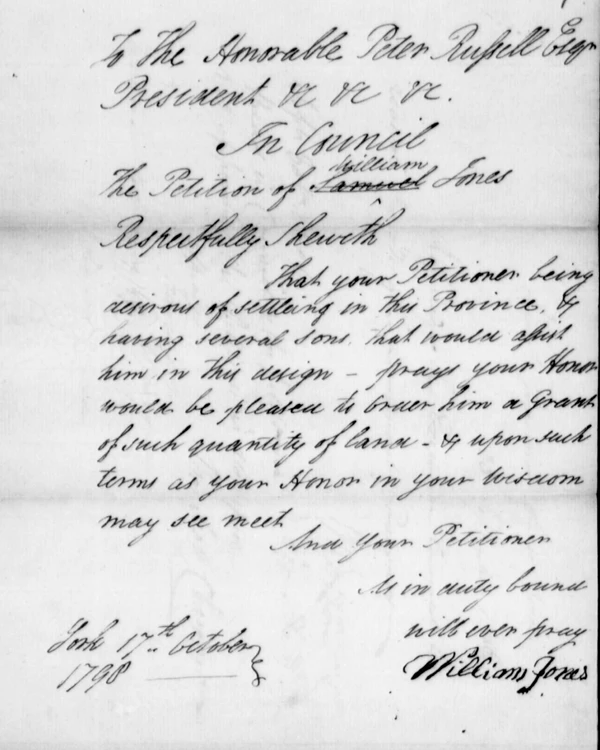 To The Honorable Peter Russell Esqr
President &c &c &c.
In Council
William
The Petition of Samuel Jones
Respectfully Sheweth
That your Petitioner being
desirous of settleing in this Province, &
having several sons that would assist
him in this design - prays your Honor
would be pleased to order him a Grant
of such quantity of land - & upon such
terms as your Honor in your wisdom
may see meet
And your Petitioner
As in duty bound
will ever pray
York 17th October
1798
William Jones